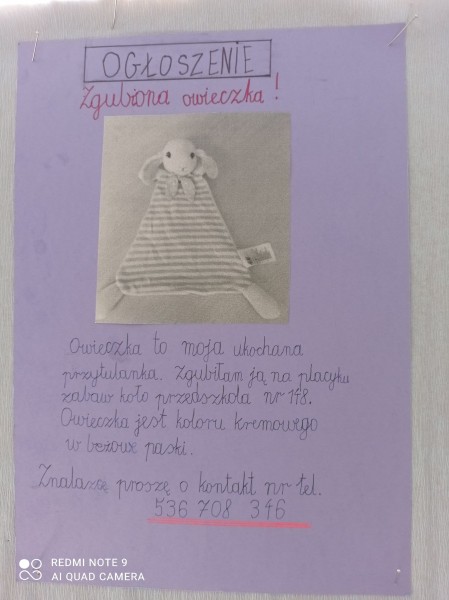 OGŁOSZENIE
Zgubiona owieczka!
Owieczka to moja ukochana
przytulanka. Zgubiłam ją na placyku
zabaw koło przedszkola nr 148.
Owieczka jest koloru kremowego
w beżowe paski.
Znalazcę proszę o kontakt nr tel.
536 708 346
REDMI NOTE 9
AI QUAD CAMERA